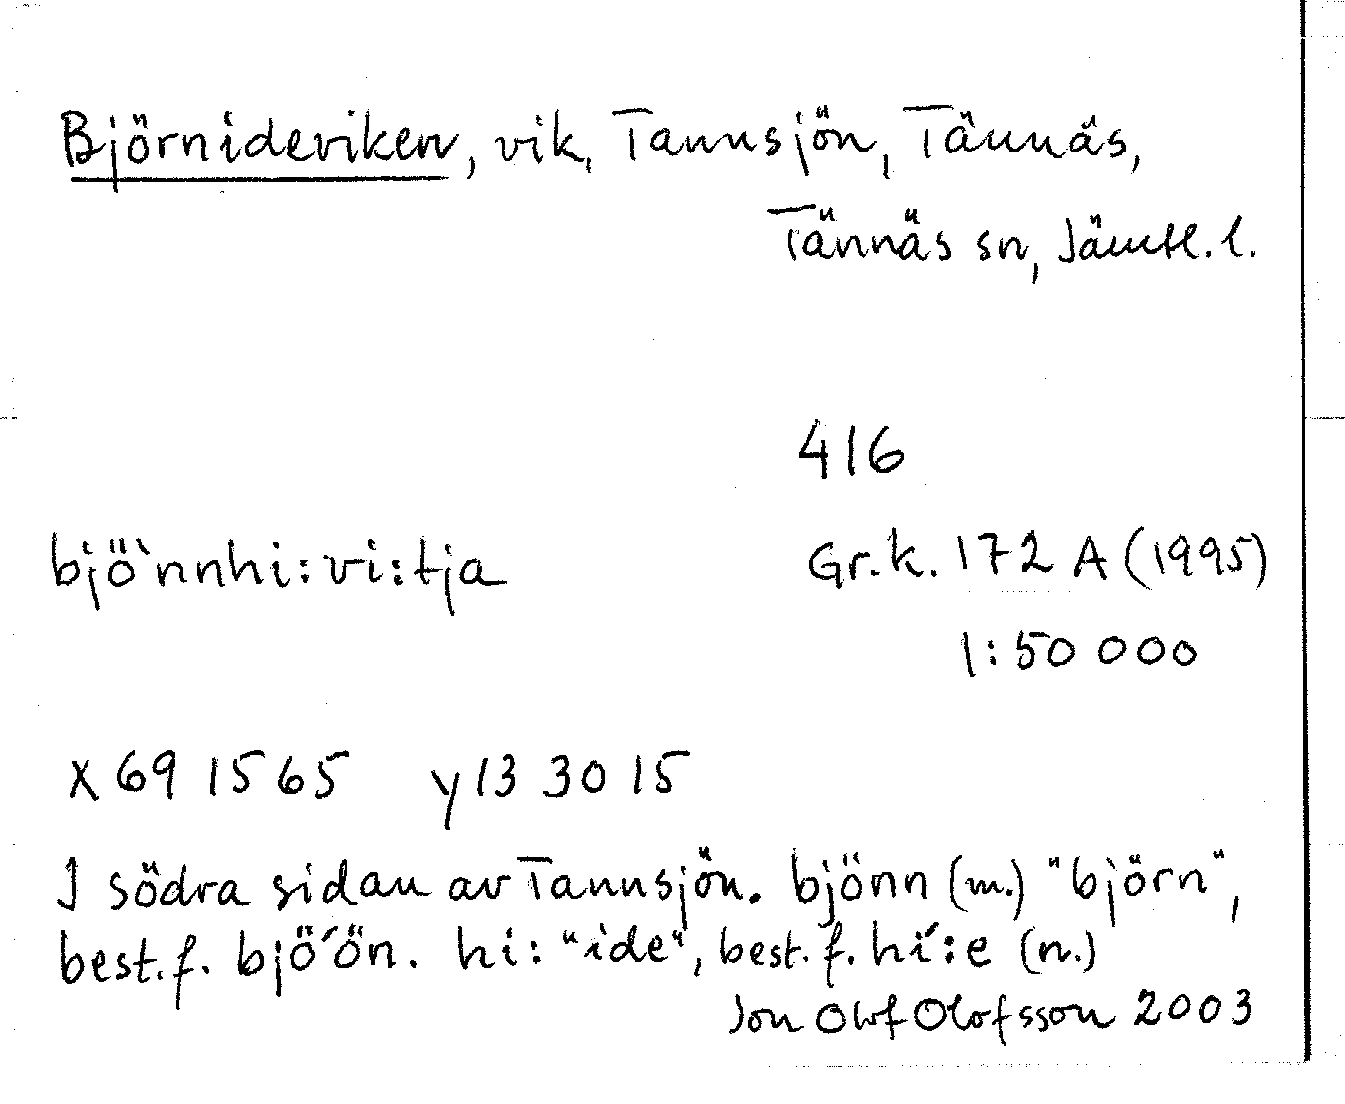 Björnideviken, vik, Tannsjön, Tännäs,
Tännäs sn, Jämtl. l.
416
bjö̀nnhi:vi:tja
Gr.k. 172 A (1995)
1:50 000
x 69 15 65 y 13 30 15
I södra sidan av Tannsjön. bjönn (m.) "björn",
best.f. bjö´ön. hi: "ide", best. f. hí:e (n.)
Jon Olof Olofsson 2003